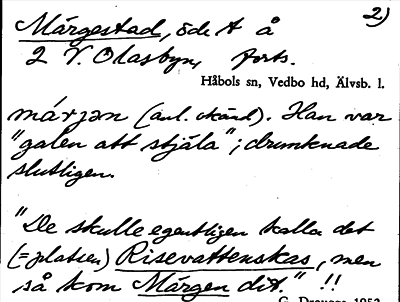 2)
Märgestad, öde t å
2 V. Olasbyn, forts.
Håbols sn, Vedbo hd, Älvsb. l.
márjən (anl. okänd). Han var
"galen att stjäla"; drunknade
slutligen.
"De skulle egentligen kalla det
(= platsen) Risevattenskas, men
så kom Märgen dit." !!